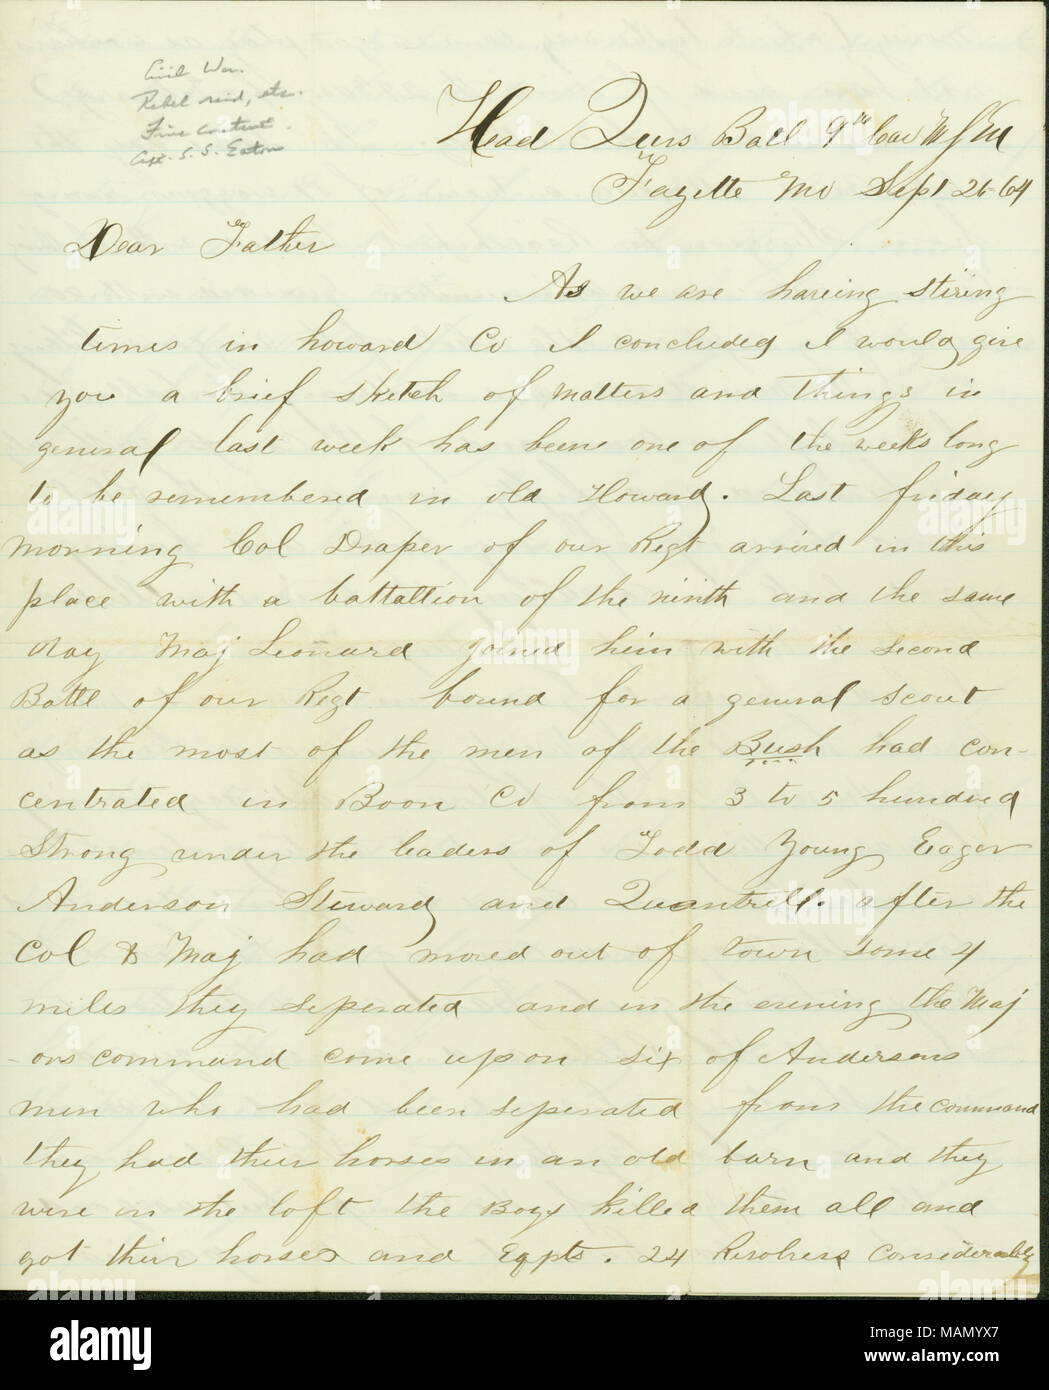 Civil War.
Rebel raid, etc.
Fine Content.
Capt. S. S. Eaton
Head Qurs Batl 9th Cav M S M
Fayette Mo Sept 26-64
Dear Father
As we are haveing stiring
times in howard Co I concluded I would give
you a brief sketch of matters and things in
general last week has been one of the weeks long
to be remembered in old Howard. Last friday
morning Col Draper of our Regt arrived in this
place with a battallion of the ninth and the same
day Maj Leonard joined him with the second
Battl of our Regt bound for a general scout
as the most of the men of the Bush had con-
centrated in Boon Co from 3 to 5 hundred
Strong under the leaders of Todd Young Eager
Anderson Steward and Quantrill. after the
Col & Maj had moved out of town some 4
miles they seperated and in the evening the Maj
-ors command come up on six of Andersons
men who had been seperated from the command
they had their horses in an old barn and they
were in the loft the Boys killed them all and
got their horses and Eqpts. 24 Revolvers Considerable
alamy
MAMYX7
www.alamy.com